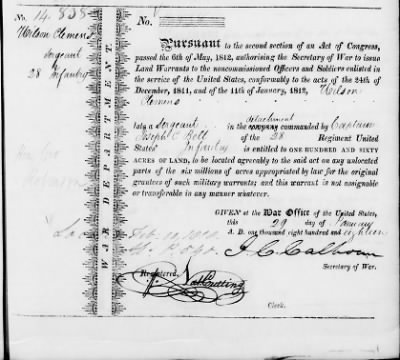 No. 14.838
Wilson Clemens
Sergeant
28 Infantry
WAR DEPARTMENT.
No.
Pursuant to the second section of an Act of Congress,
passed the 6th of May, 1812, authorising the Secretary of War to issue
Land Warrants to the noncommissioned Officers and Soldiers enlisted
in the service of the United States, conformably to the acts of the 24th of
December, 1811, and the 11th of January, 1812, Wilson
Clemens
late a Sergeant in the company detachment commanded by Captain
Joseph C Belt of the 28 Regiment United
States Infantry is entitled to ONE HUNDRED AND SIXTY
ACRES OF LAND, to be located agreeably to the said act on any unlocated
parts of the six millions of acres appropriated by law for the original
grantees of such military warrants; and this warrant is not assignable
or transferable in any manner whatever.
GIVEN at the War Office of the United States,
this 29 day of January
A. D. one thousand eight hundred and eighteen
J. C. Calhoun
Secretary of War.
Registered.
Nat Cutting
Clerk.